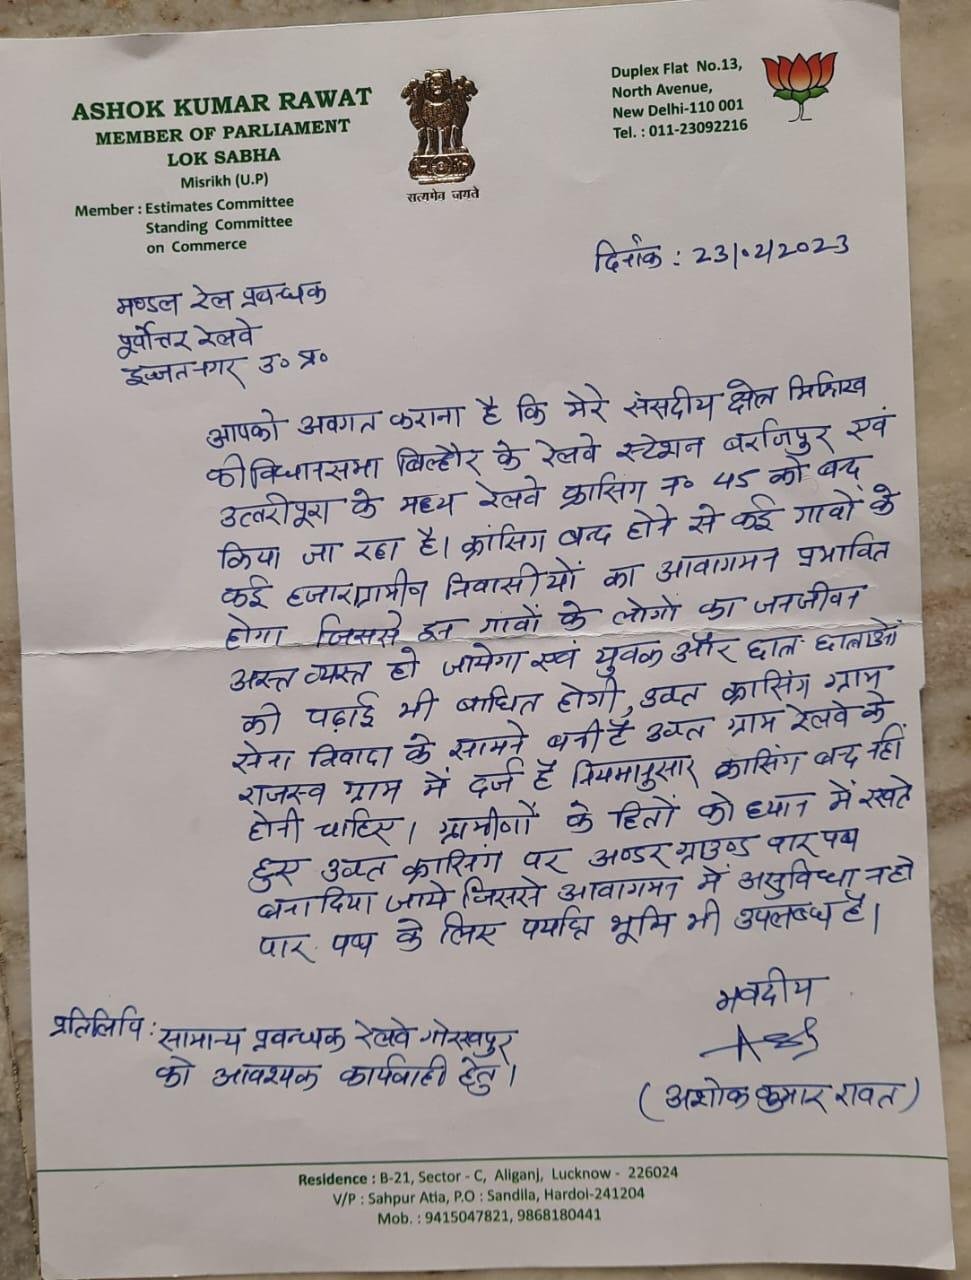 ASHOK KUMAR RAWAT
MEMBER OF PARLIAMENT
LOK SABHA
Misrikh (U.P)
Member : Estimates Committee
Standing Committee
on Commerce
सत्यमेव जयते
Duplex Flat No.13,
North Avenue,
New Delhi-110 001
Tel. : 011-23092216
दिनांक : 23/02/2023
मण्डल रेल प्रवन्धक
पूर्वोत्तर रेलवे
इज्जतनगर उ० प्र०
आपको अवगत कराना है कि मेरे संसदीय क्षेत्र मिश्रिख
की विधानसभा बिल्हौर के रेलवे स्टेशन बर्राजपुर एवं
उत्तरीपूरा के मध्य रेलवे क्रासिंग न० 45 को बन्द
किया जा रहा है। क्रांसिग बन्द होने से कई गावों के
कई हजार ग्रामीण निवासीयों का आवागमन प्रभावित
होगा जिससे इन गांवों के लोगों का जनजीवन
अस्त व्यस्त हो जायेगा एवं युवक और छात्र छात्राओं
की पढ़ाई भी बाधित होगी, उक्त क्रासिंग ग्राम
सेना निवादा के सामने बनी है उक्त ग्राम रेलवे के
राजस्व ग्राम में दर्ज है नियमानुसार क्रासिंग बन्द नहीं
होनी चाहिए। ग्रामीणों के हितों को ध्यान में रखते
हुए उक्त क्रासिंग पर अण्डर ग्राउण्ड पार पथ
बना दिया जाये जिससे आवागमन में असुविधा न हो
पार पथ के लिए पर्याप्त भूमि भी उपलब्ध है।
भवदीय
(अशोक कुमार रावत)
प्रतिलिपि : सामान्य प्रवन्धक रेलवे गोरखपुर
को आवश्यक कार्यवाही हेतु।
Residence : B-21, Sector - C, Aliganj, Lucknow - 226024
V/P : Sahpur Atia, P.O : Sandila, Hardoi-241204
Mob. : 9415047821, 9868180441